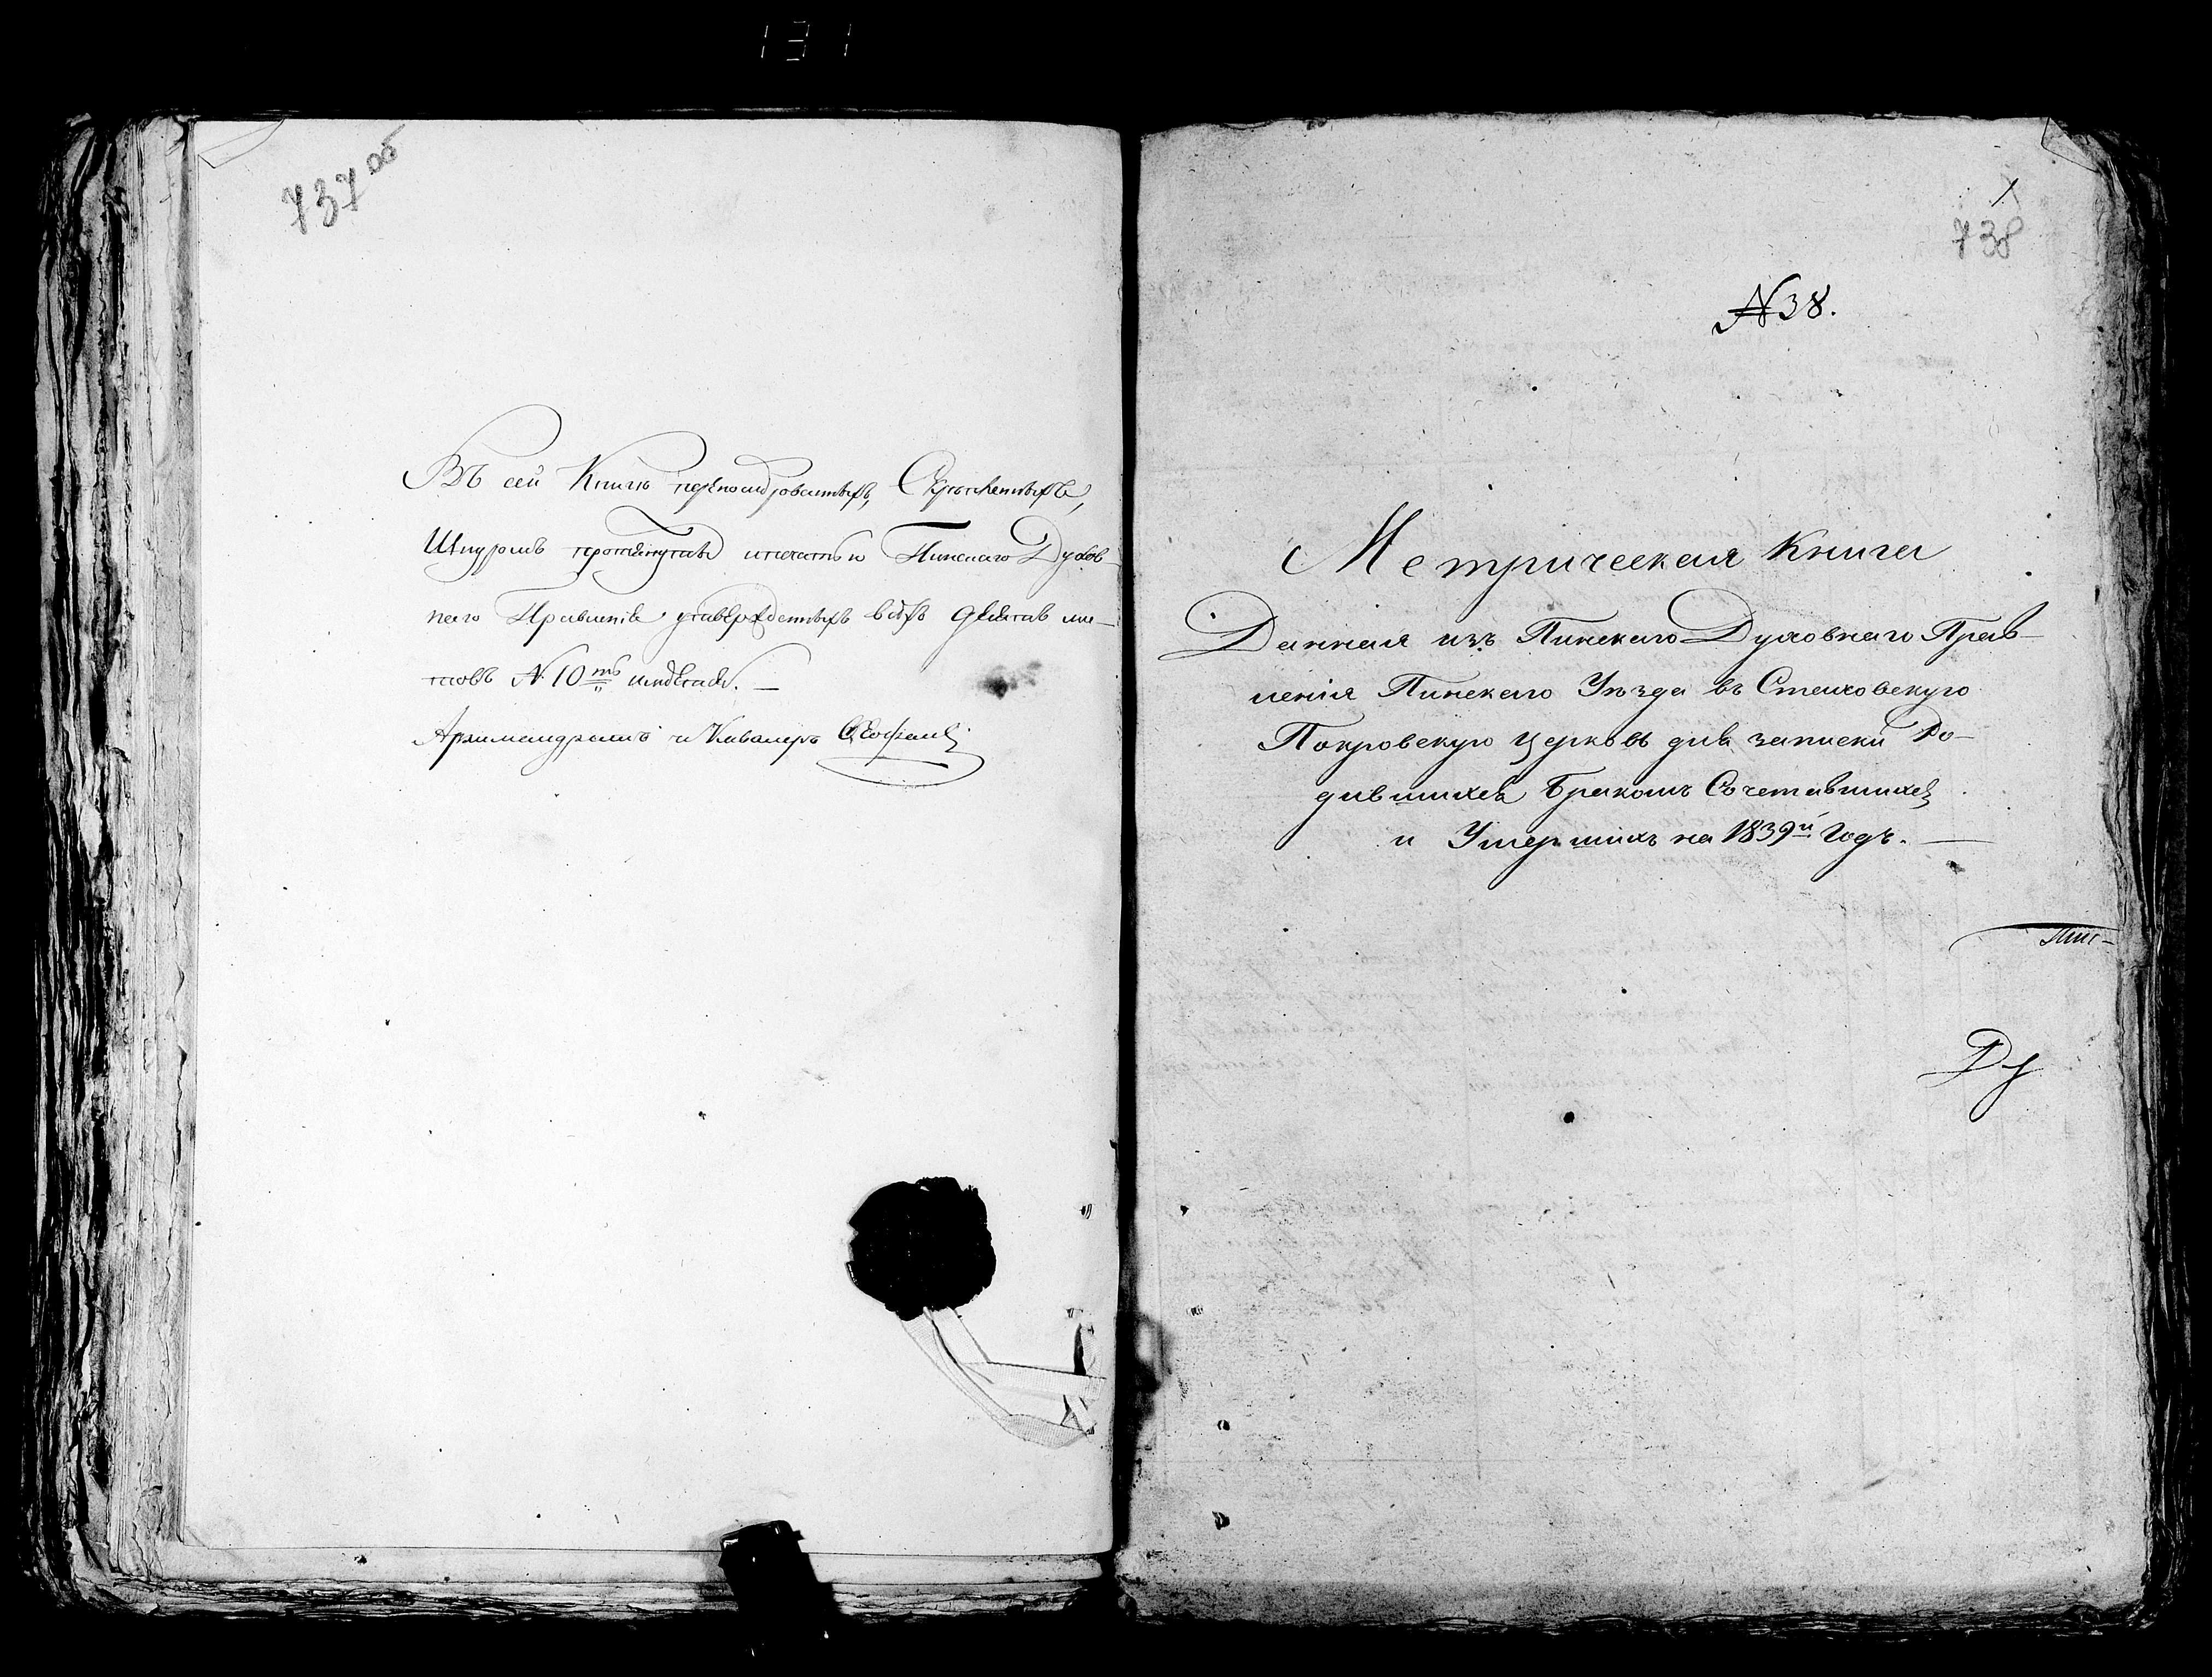 131
737 об
Въ сей Книгѣ перенумерованныхъ, Скрѣпленныхъ,
Шнуромъ протянутыхъ и печатью Пинскаго Духов-
наго Правленія утвержденныхъ всѣхъ десять лис-
товъ № 10ть листовъ. —
Архимандритъ и Кавалеръ
1
738
№ 38.
Метрическая Книга
Данная изъ Пинскаго Духовнаго Прав-
ленія Пинскаго Уѣзда въ Стаховскую
Покровскую церковь для записки Ро-
дившихся Бракомъ Сочетавшихся
и Умершихъ на 1839й Годъ. —
Пин-
Ду